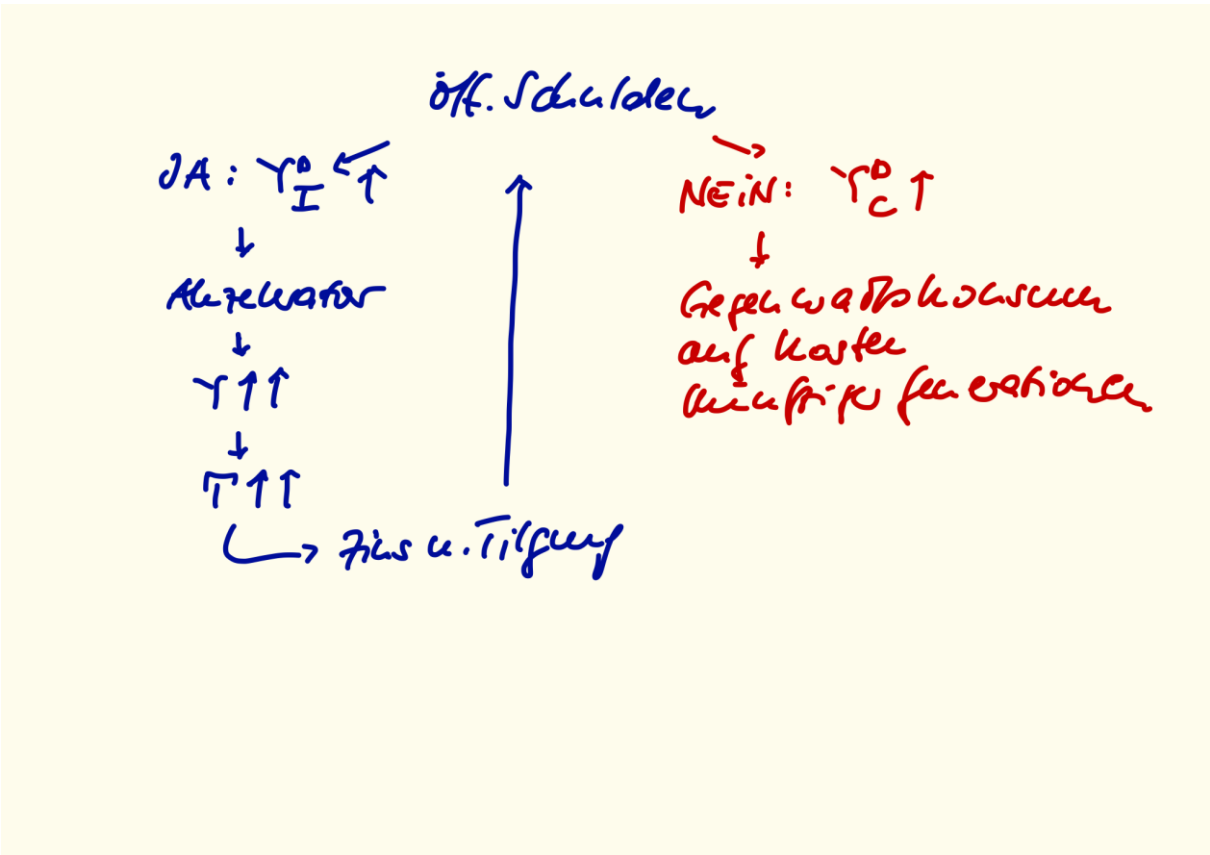 öff. Schulden
JA: Y^D_I ↑
↓
Akzelerator
↓
Y ↑↑
↓
T ↑↑
→ Zins u. Tilgung
NEiN: Y^D_C ↑
↓
Gegenwartskonsum
auf Kosten
künftiger Generationen